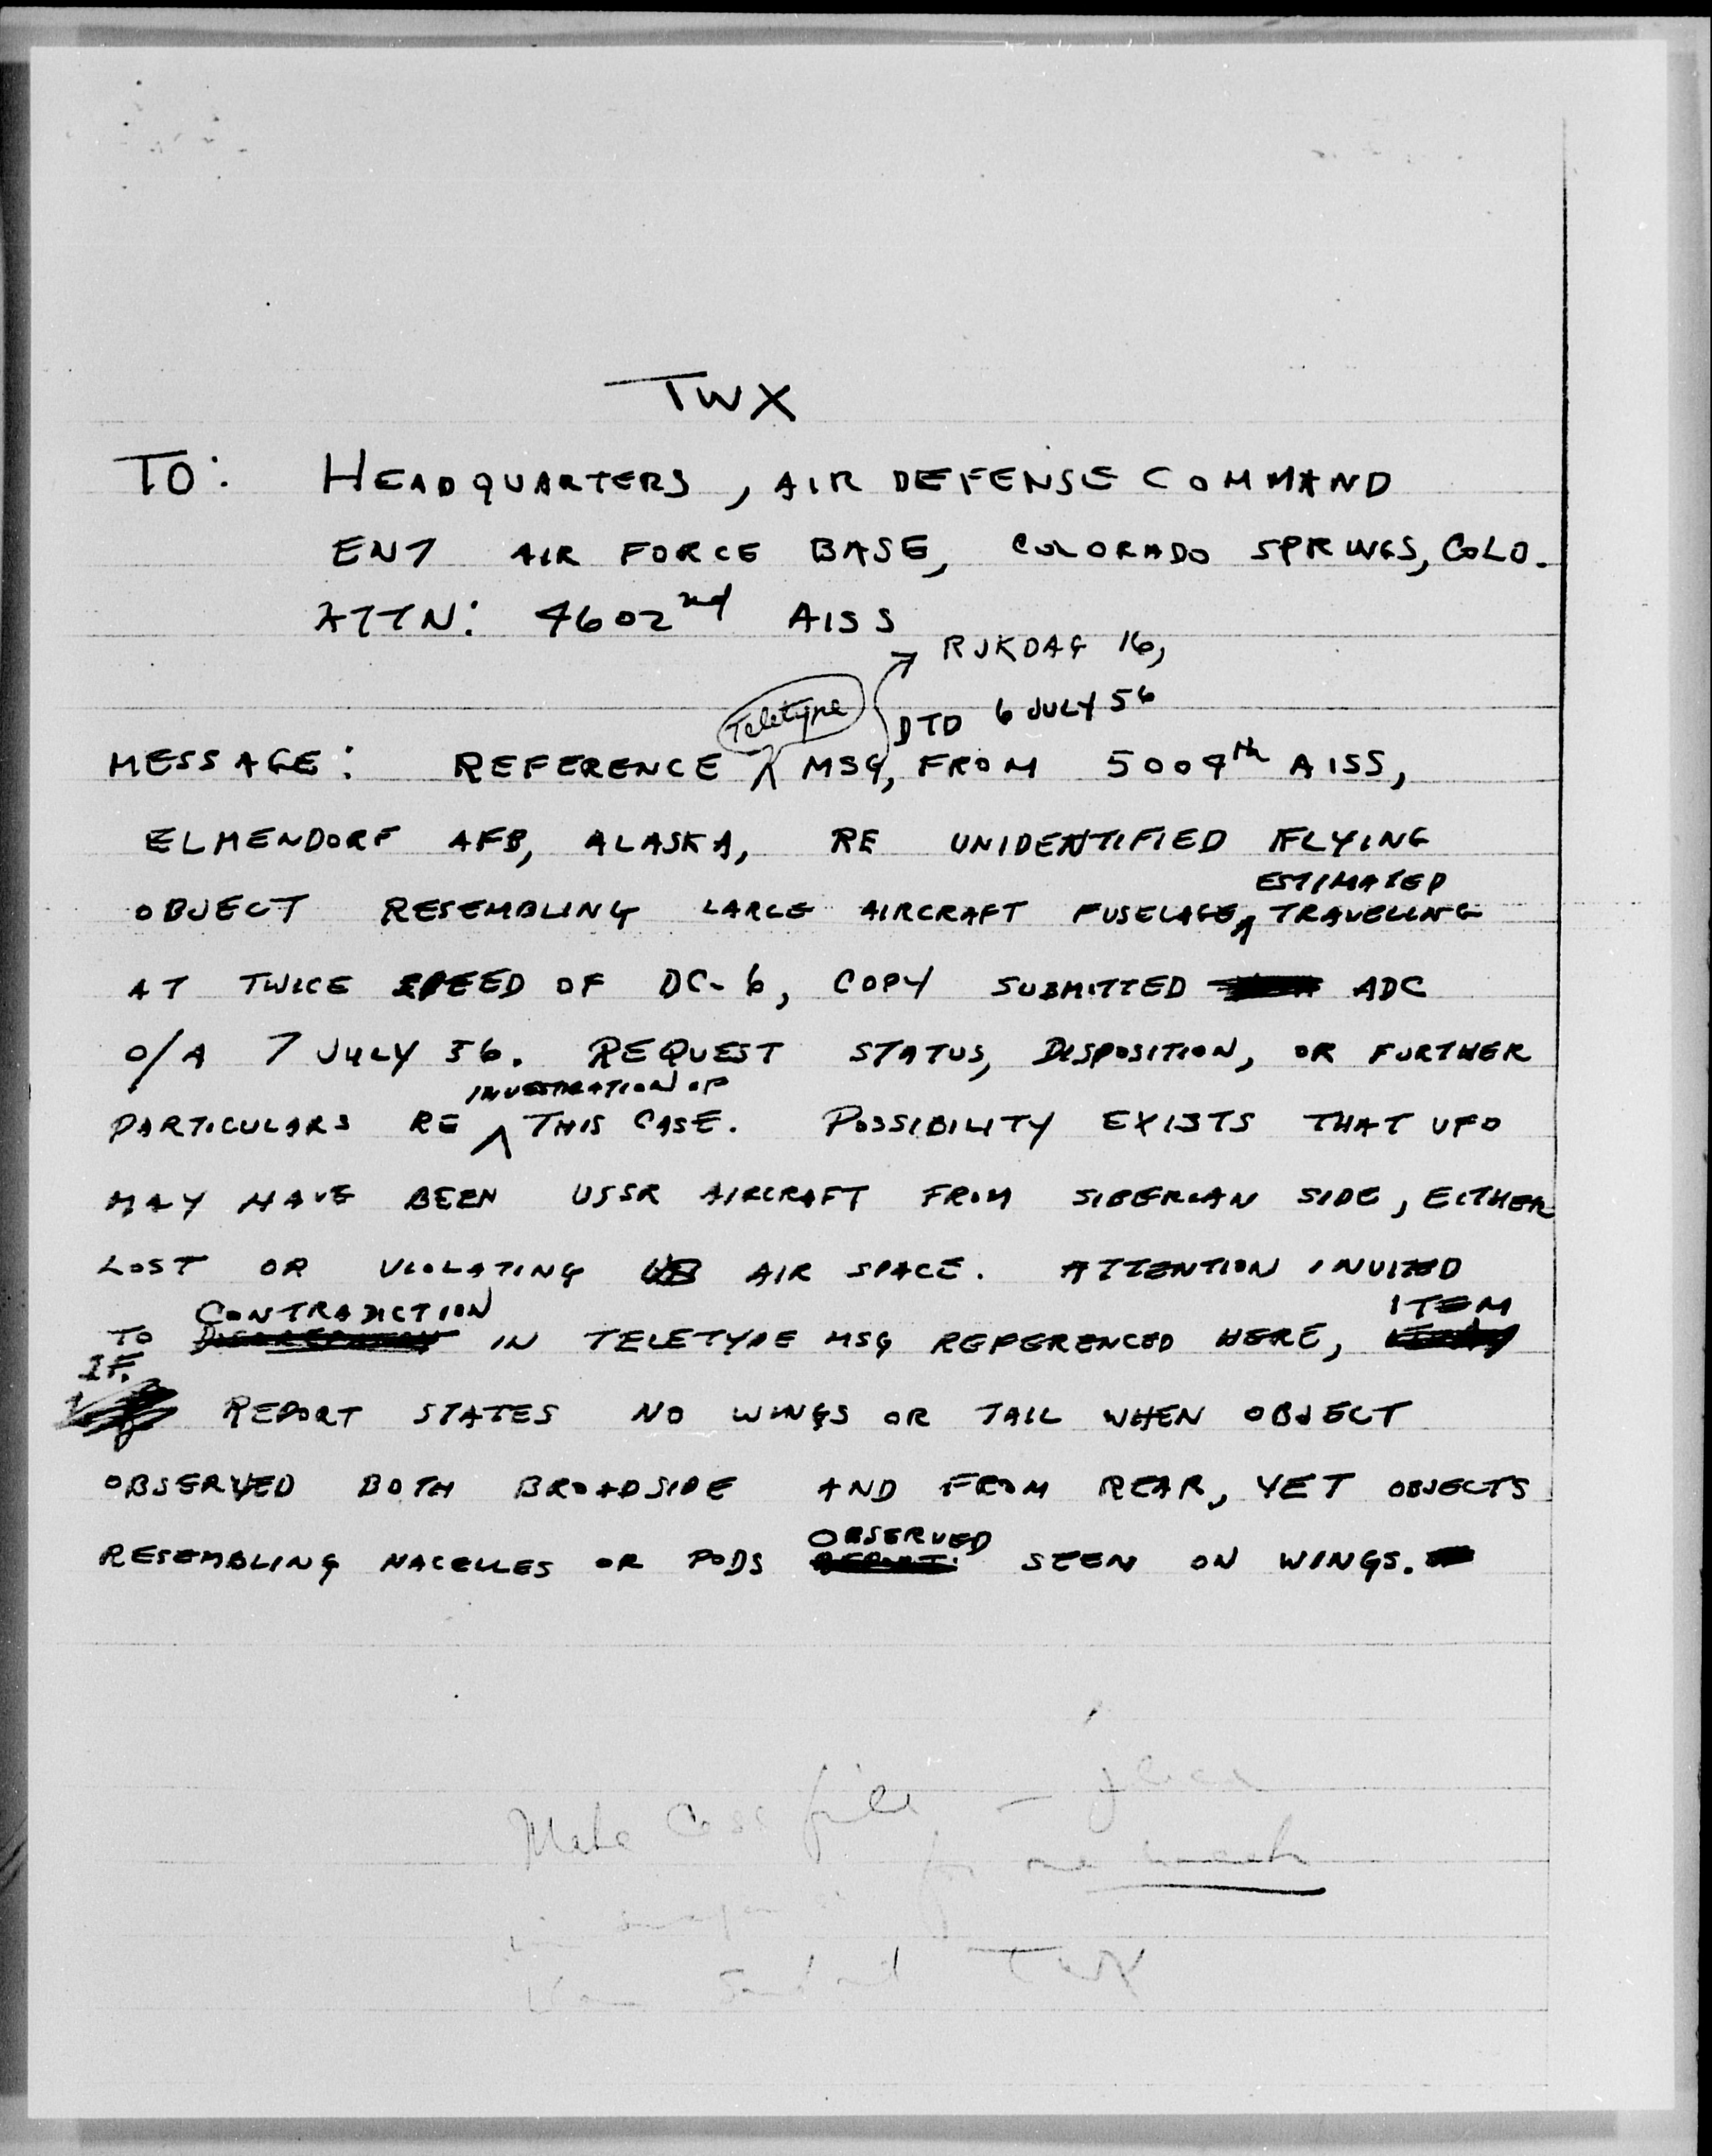 TWX
TO: HEADQUARTERS, AIR DEFENSE COMMAND
ENT AIR FORCE BASE, COLORADO SPRINGS, COLO.
ATTN: 4602nd AISS
RJKDAG 16,
Teletype
DTD 6 JULY 56
MESSAGE: REFERENCE MSG, FROM 5004th AISS,
ELMENDORF AFB, ALASKA, RE UNIDENTIFIED FLYING
ESTIMATED
OBJECT RESEMBLING LARGE AIRCRAFT FUSELAGE, TRAVELING
AT TWICE SPEED OF DC-6, COPY SUBMITTED ADC
O/A 7 JULY 56. REQUEST STATUS, DISPOSITION, OR FURTHER
INVESTIGATION OF
PARTICULARS RE THIS CASE. POSSIBILITY EXISTS THAT UFO
MAY HAVE BEEN USSR AIRCRAFT FROM SIBERIAN SIDE, EITHER
LOST OR VIOLATING US AIR SPACE. ATTENTION INVITED
CONTRADICTION ITEM
TO IN TELETYPE MSG REFERENCED HERE,
IF.
REPORT STATES NO WINGS OR TAIL WHEN OBJECT
OBSERVED BOTH BROADSIDE AND FROM REAR, YET OBJECTS
OBSERVED
RESEMBLING NACELLES OR PODS SEEN ON WINGS.
Make Case file -
for one week
TWX